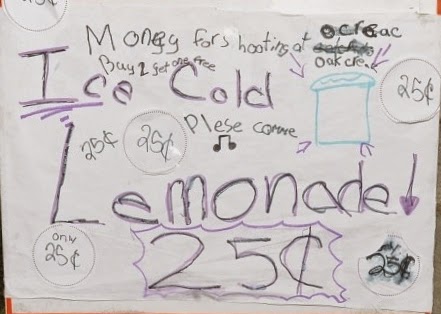 25¢
Money fors hooting at ocreac
oakcreac
Buy 2 get one free
Ice Cold
25¢
25¢ 25¢ Plese comme
Lemonade
only
25¢
25¢
25¢